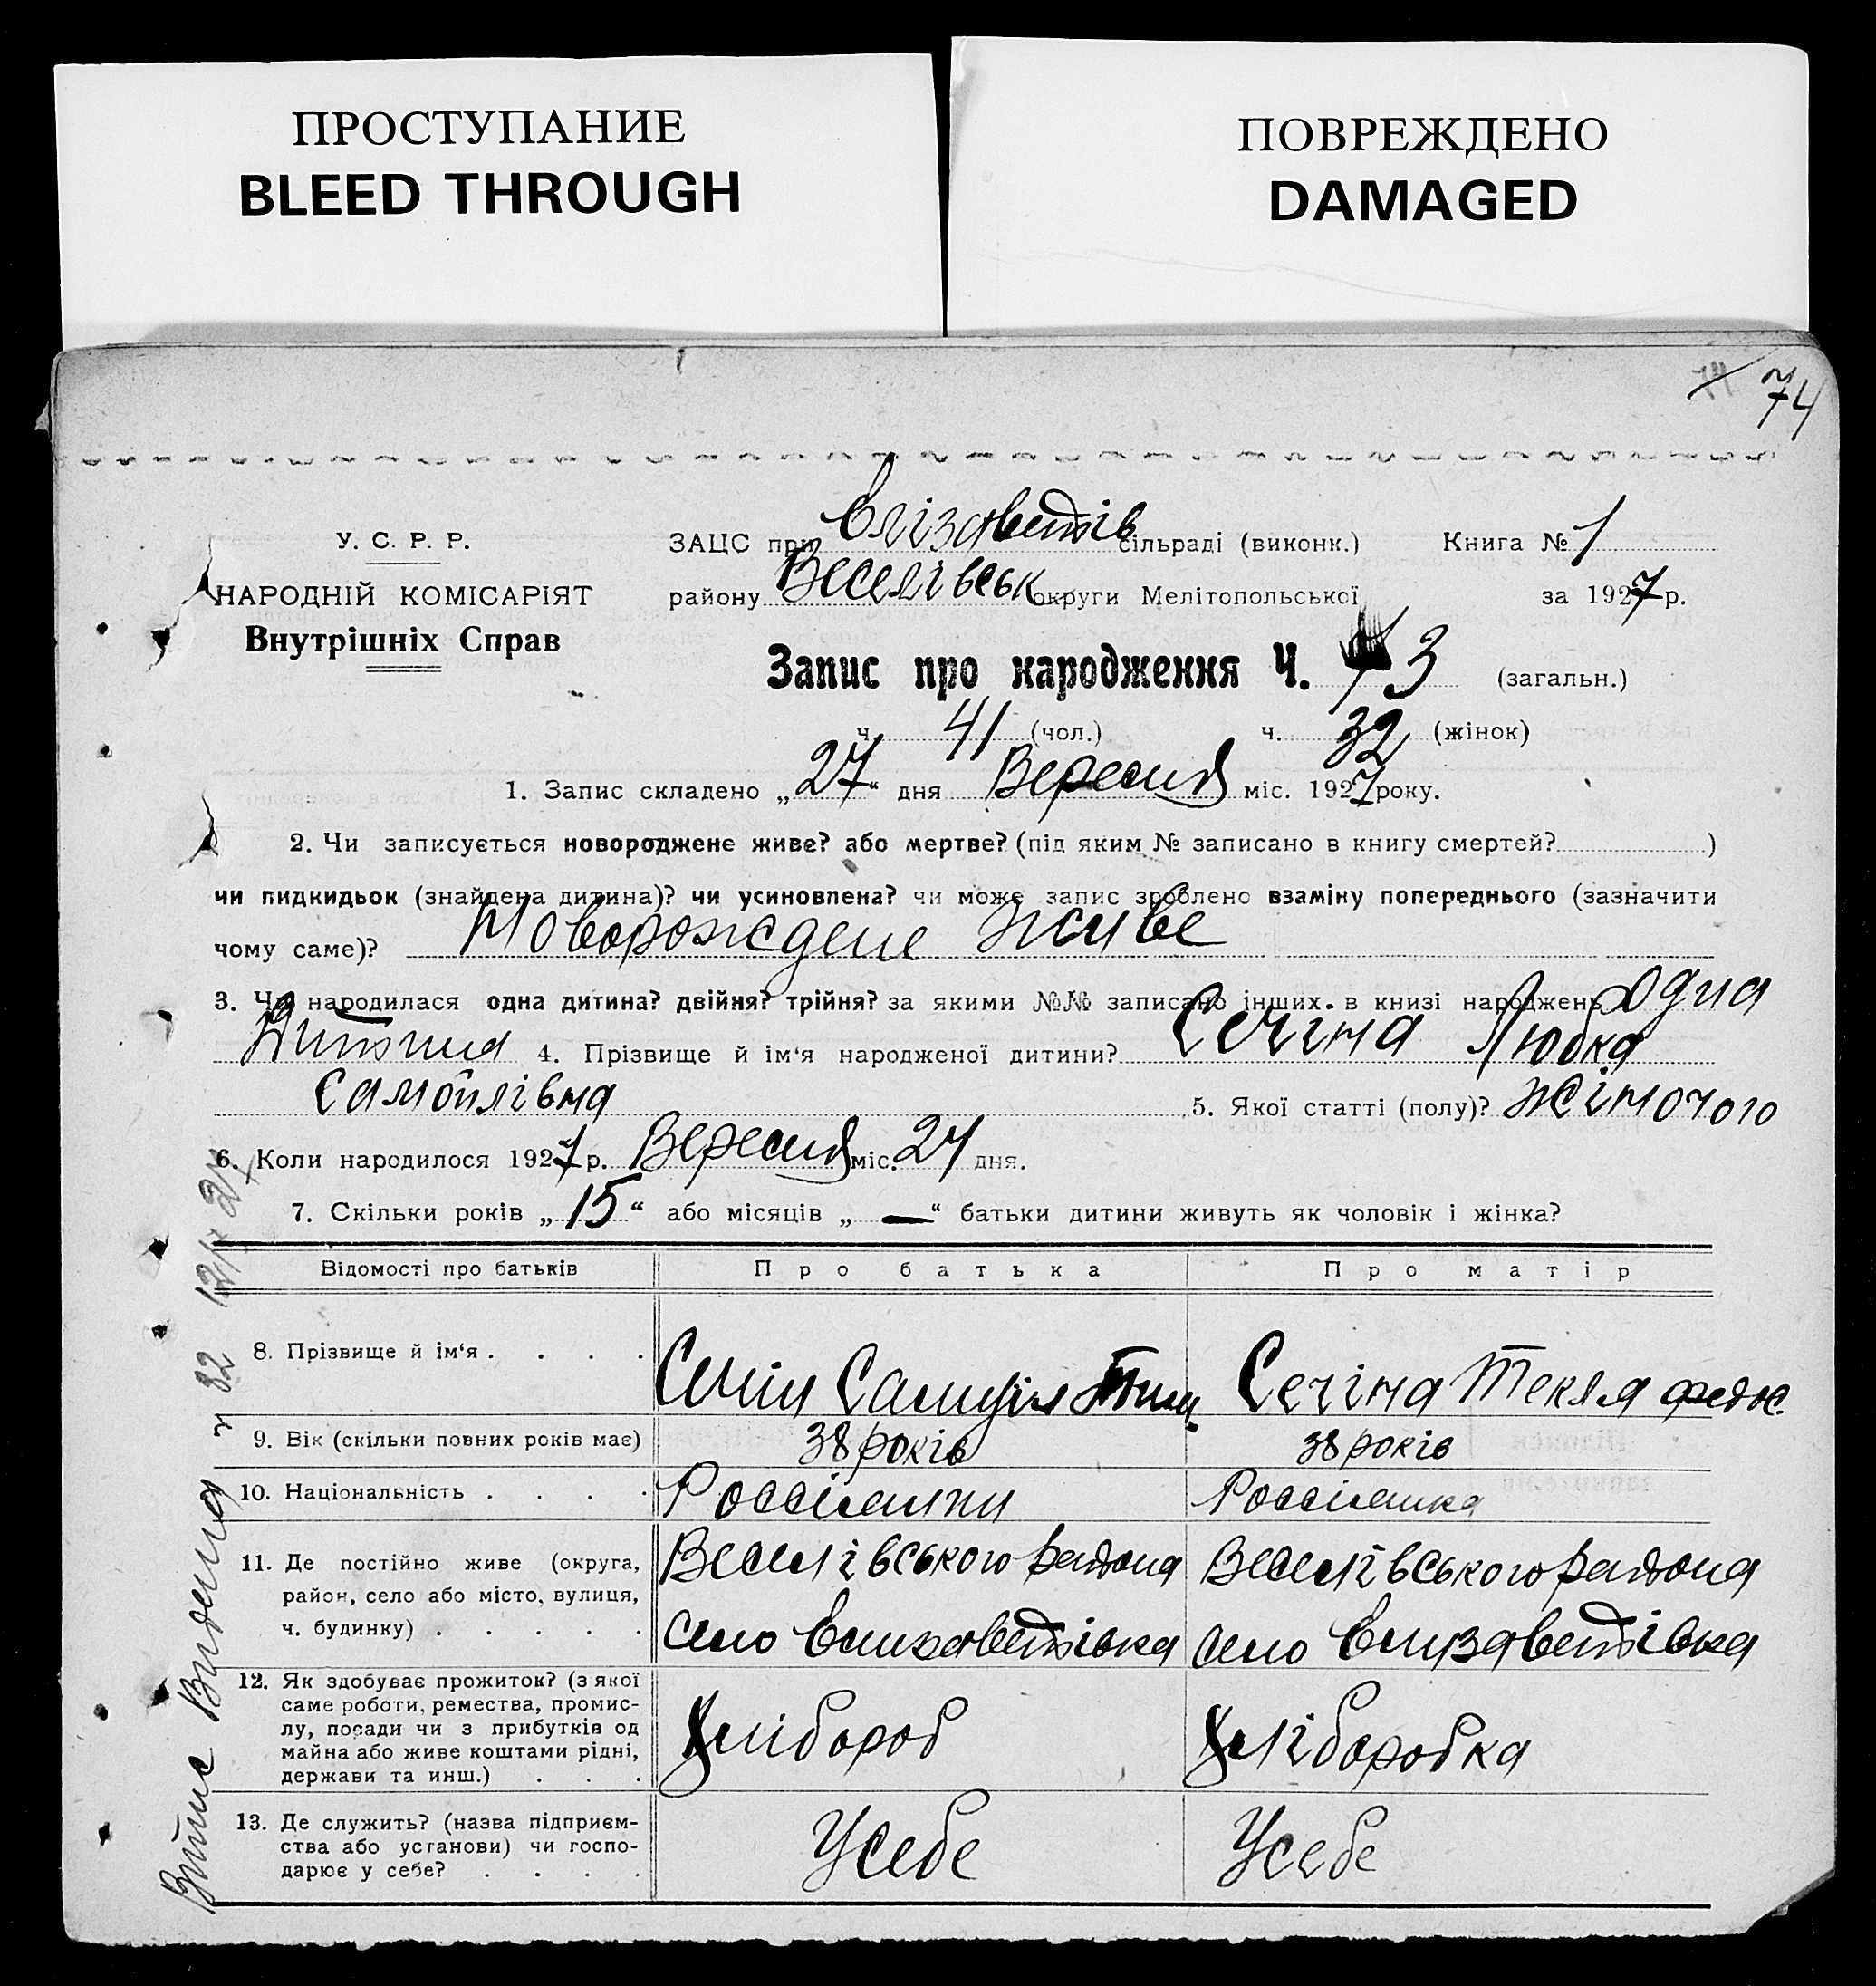 ПРОСТУПАНИЕ
BLEED THROUGH
ПОВРЕЖДЕНО
DAMAGED
74
У. С. Р. Р.
НАРОДНІЙ КОМІСАРІЯТ
Внутрішніх Справ
ЗАЦС при Єлізаветів сільраді (виконк.) Книга № 1
району Веселівськ округи Мелітопольської за 1927 р.
Запис про народження Ч. 73 (загальн.)
ч. 41 (чол.) ч. 32 (жінок)
1. Запис складено „27“ дня Вересня міс. 1927 року.
2. Чи записується новороджене живе? або мертве? (під яким № записано в книгу смертей? )
чи пидкидьок (знайдена дитина)? чи усиновлена? чи може запис зроблено взаміну попереднього (зазначити
чому саме)? Новорождене живе
3. Чи народилася одна дитина? двійня? трійня? за якими №№ записано інших в книзі народжень одна
дитина 4. Прізвище й ім‘я народженої дитини? Сечіна Любка
Самойлівна 5. Якої статті (полу)? жіночого
6. Коли народилося 1927 р. Вересня міс. 24 дня.
7. Скільки років „15“ або місяців „—“ батьки дитини живуть як чоловік і жінка?
Відомості про батьків Про батька Про матір
8. Прізвище й ім‘я . . . . Сечін Самуіл Тим. Сечіна Текля Федос.
9. Вік (скільки повних років має) 38 років 38 років
10. Національність . . . . Россіянин Россіянка
11. Де постійно живе (округа, район, село або місто, вулиця, ч. будинку) . . . . .
Веселівського района Веселівського района
село Елизаветівка село Елизаветівка
12. Як здобуває прожиток? (з якої
саме роботи, ремества, промис-
лу, посади чи з прибутків од
майна або живе коштами рідні,
держави та инш.) . . .
Хлібороб Хліборобка
13. Де служить? (назва підприєм-
ства або установи) чи госпо-
дарює у себе? . . . .
Усебе Усебе
Випис Видена